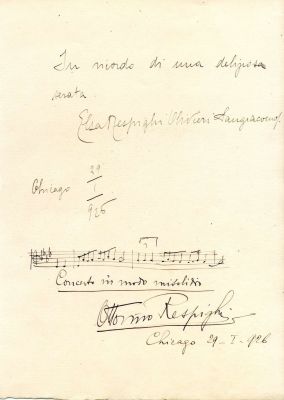 In ricordo di una deliziosa
serata
Elsa Respighi Olivieri Sangiacomo
Chicago 29
I
926
Concerto in modo misolidio
Ottorino Respighi
Chicago 29-I-926